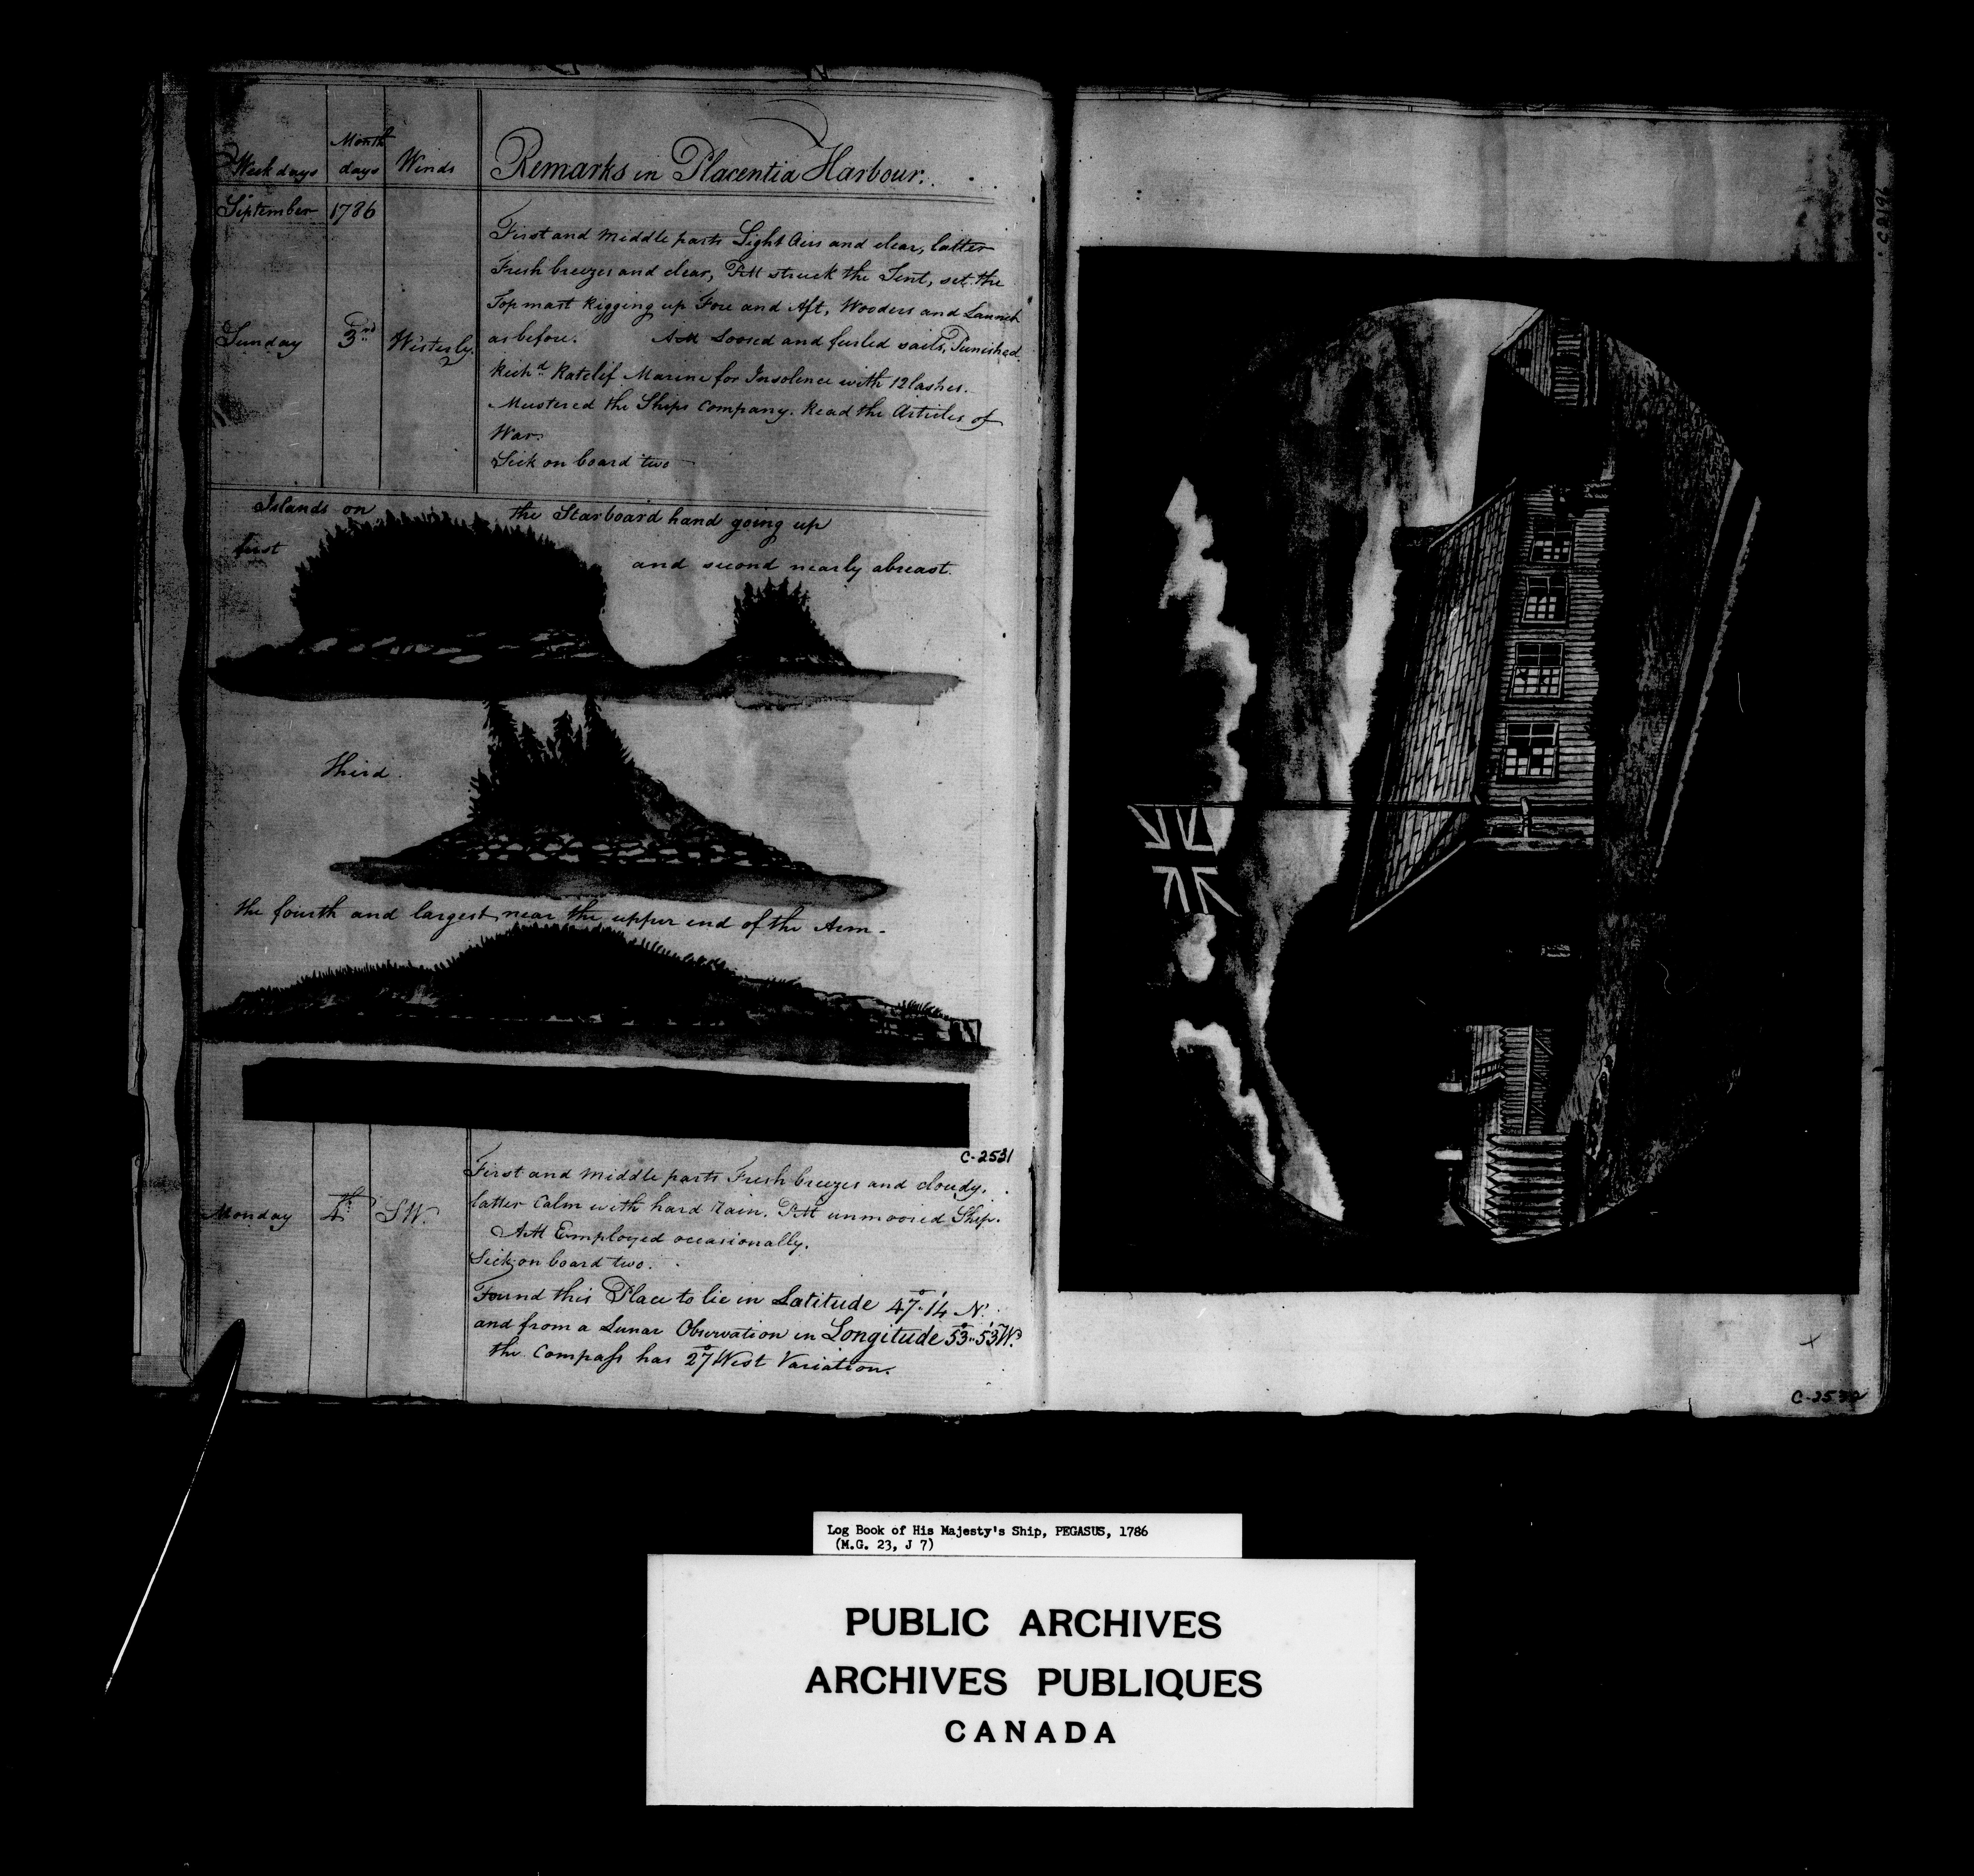 Week days Month days Winds Remarks in Placentia Harbour.
September 1786
First and middle parts Light Airs and clear, latter
Fresh breezes and clear, PM struck the Tent, set the
Topmast Rigging up Fore and Aft, Wooders and Launch
Sunday 3rd Westerly. as before. AM Loosed and furled sails, Punished
Richd Ratclif Marine for Insolence with 12 lashes.
Mustered the Ships Company. Read the Articles of
War.
Sick on board two
Islands on the Starboard hand going up
first and second nearly abreast.
third.
the fourth and largest near the upper end of the Arm -
C-2531
First and middle parts Fresh breezes and cloudy,
Monday 4th SW. latter Calm with hard Rain. PM unmoored Ship.
AM Employed occasionally.
Sick on board two.
Found this Place to lie in Latitude 47°.14' N.
and from a Lunar Observation in Longitude 53°..53'W.
the Compass has 27° West Variation.
Log Book of His Majesty's Ship, PEGASUS, 1786
(M.G. 23, J 7)
PUBLIC ARCHIVES
ARCHIVES PUBLIQUES
CANADA